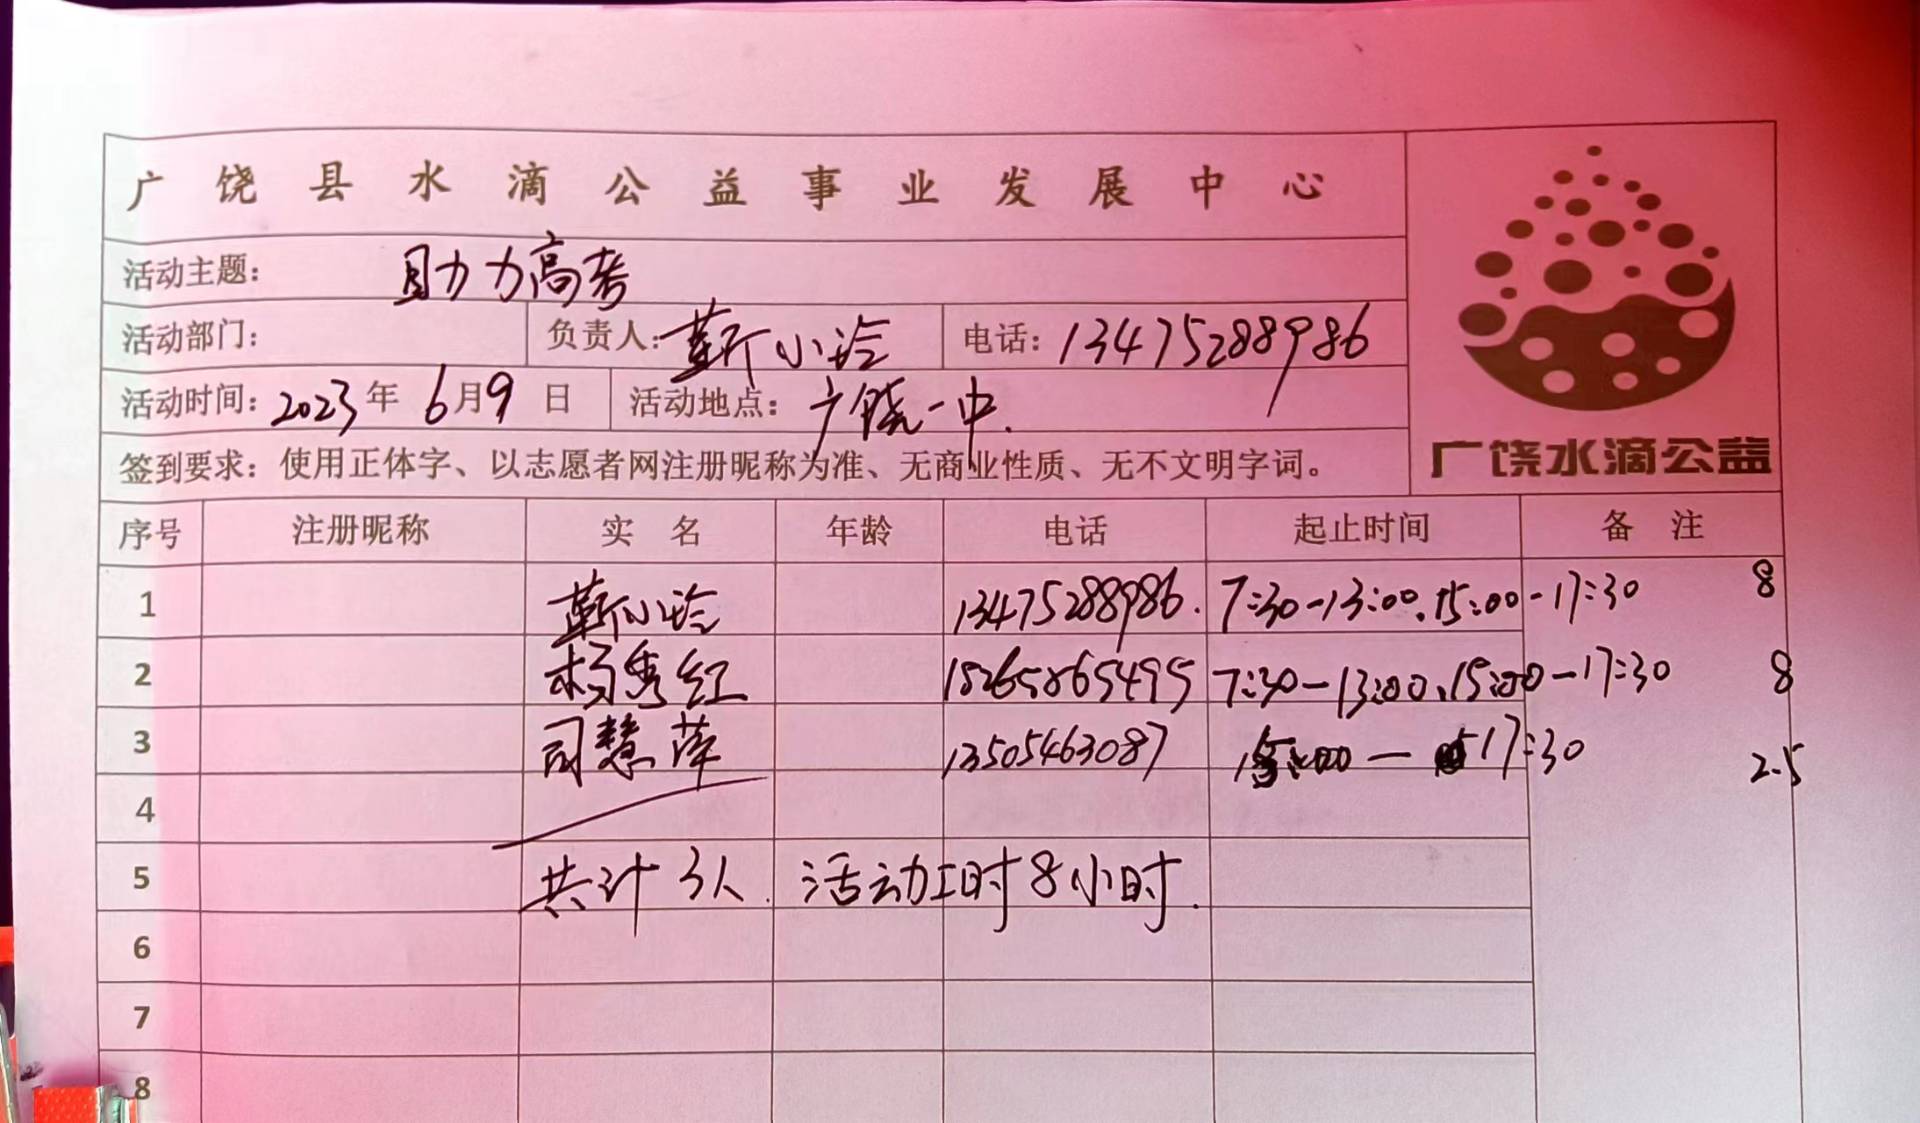 广饶县水滴公益事业发展中心
活动主题： 助力高考
活动部门： 负责人：靳小玲 电话：13475288986
活动时间：2023年6月9日 活动地点：广饶一中.
签到要求：使用正体字、以志愿者网注册昵称为准、无商业性质、无不文明字词。
广饶水滴公益
序号 注册昵称 实 名 年龄 电话 起止时间 备 注
1 靳小玲 13475288986. 7:30-13:00.15:00-17:30 8
2 杨秀红 18265865495 7:30-13:00.15:00-17:30 8
3 司慧萍 13505463087 15:00-17:30 2.5
4
5 共计3人. 活动工时8小时.
6
7
8